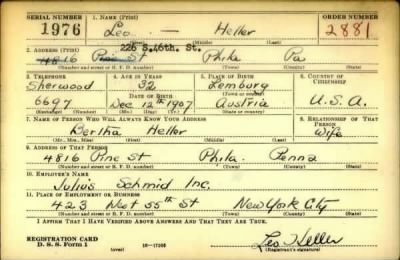 SERIAL NUMBER 1. NAME (Print) ORDER NUMBER
1976 Leo — Heller 2881
(First) (Middle) (Last)
226 S.46th. St.
2. ADDRESS (Print)
4816 Pine St Phila Pa
(Number and street or R. F. D. number) (Town) (County) (State)
3. TELEPHONE 4. AGE IN YEARS 5. PLACE OF BIRTH 6. COUNTRY OF CITIZENSHIP
Sherwood 32 Lemburg
DATE OF BIRTH
6697 Dec 12th 1907 Austria U.S.A.
(Exchange) (Number) (Mo.) (Day) (Yr.) (State or country)
7. NAME OF PERSON WHO WILL ALWAYS KNOW YOUR ADDRESS 8. RELATIONSHIP OF THAT PERSON
Bertha Heller Wife
(Mr., Mrs., Miss) (First) (Middle) (Last)
9. ADDRESS OF THAT PERSON
4816 Pine St Phila. Penna
(Number and street or R. F. D. number) (Town) (County) (State)
10. EMPLOYER'S NAME
Julius Schmid Inc.
11. PLACE OF EMPLOYMENT OR BUSINESS
423 West 55th St New York City
(Number and street or R. F. D. number) (Town) (County) (State)
I AFFIRM THAT I HAVE VERIFIED ABOVE ANSWERS AND THAT THEY ARE TRUE.
REGISTRATION CARD
D. S. S. Form 1 (over) Leo Heller
(Registrant's signature)